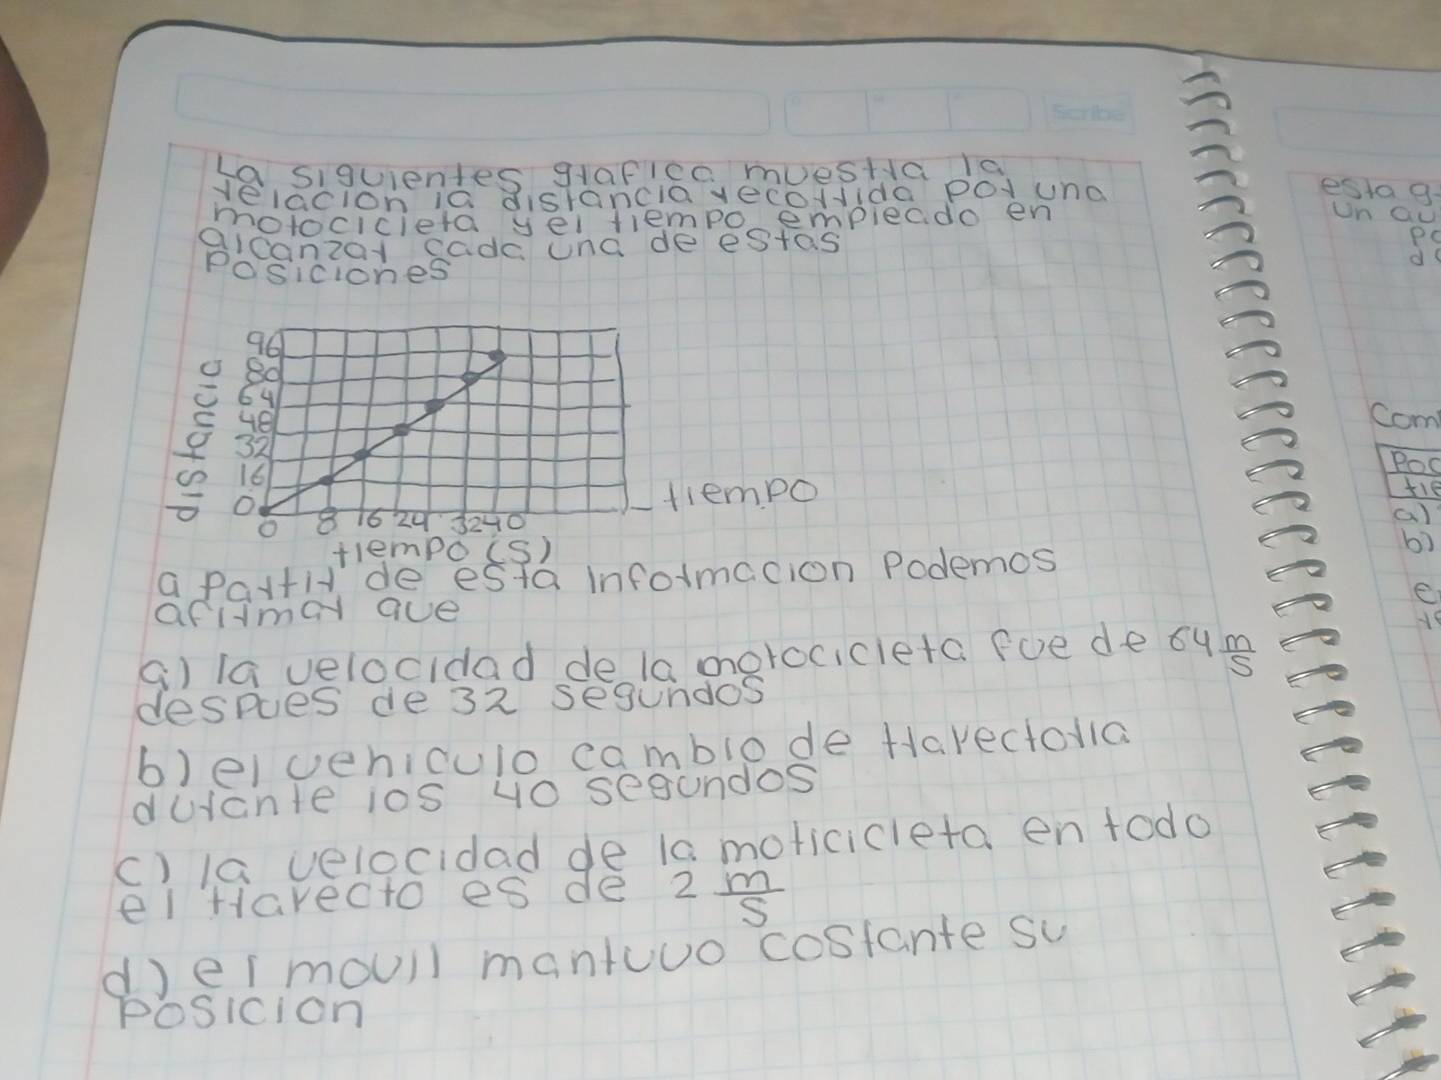 La siguientes grafica muestra la
relacion la distancia recorrida por una
motocicleta y el tiempo empleado en
alcanzar cada una de estas
posiciones
96
80
64
48
32
16
0
Distancia
0 8 16 24 32 40
tiempo
tiempo (s)
a partir de esta informacion Podemos
afirmar que
a) la velocidad de la motocicleta fue de 64 m/s
despues de 32 segundos
b) el vehiculo cambio de trayectoria
durante los 40 segundos
c) la velocidad de la moticicleta en todo
el trayecto es de 2 m/s
d) el movil mantuvo costante su
posicion
Scribe
esta
un
Com
a)
b)